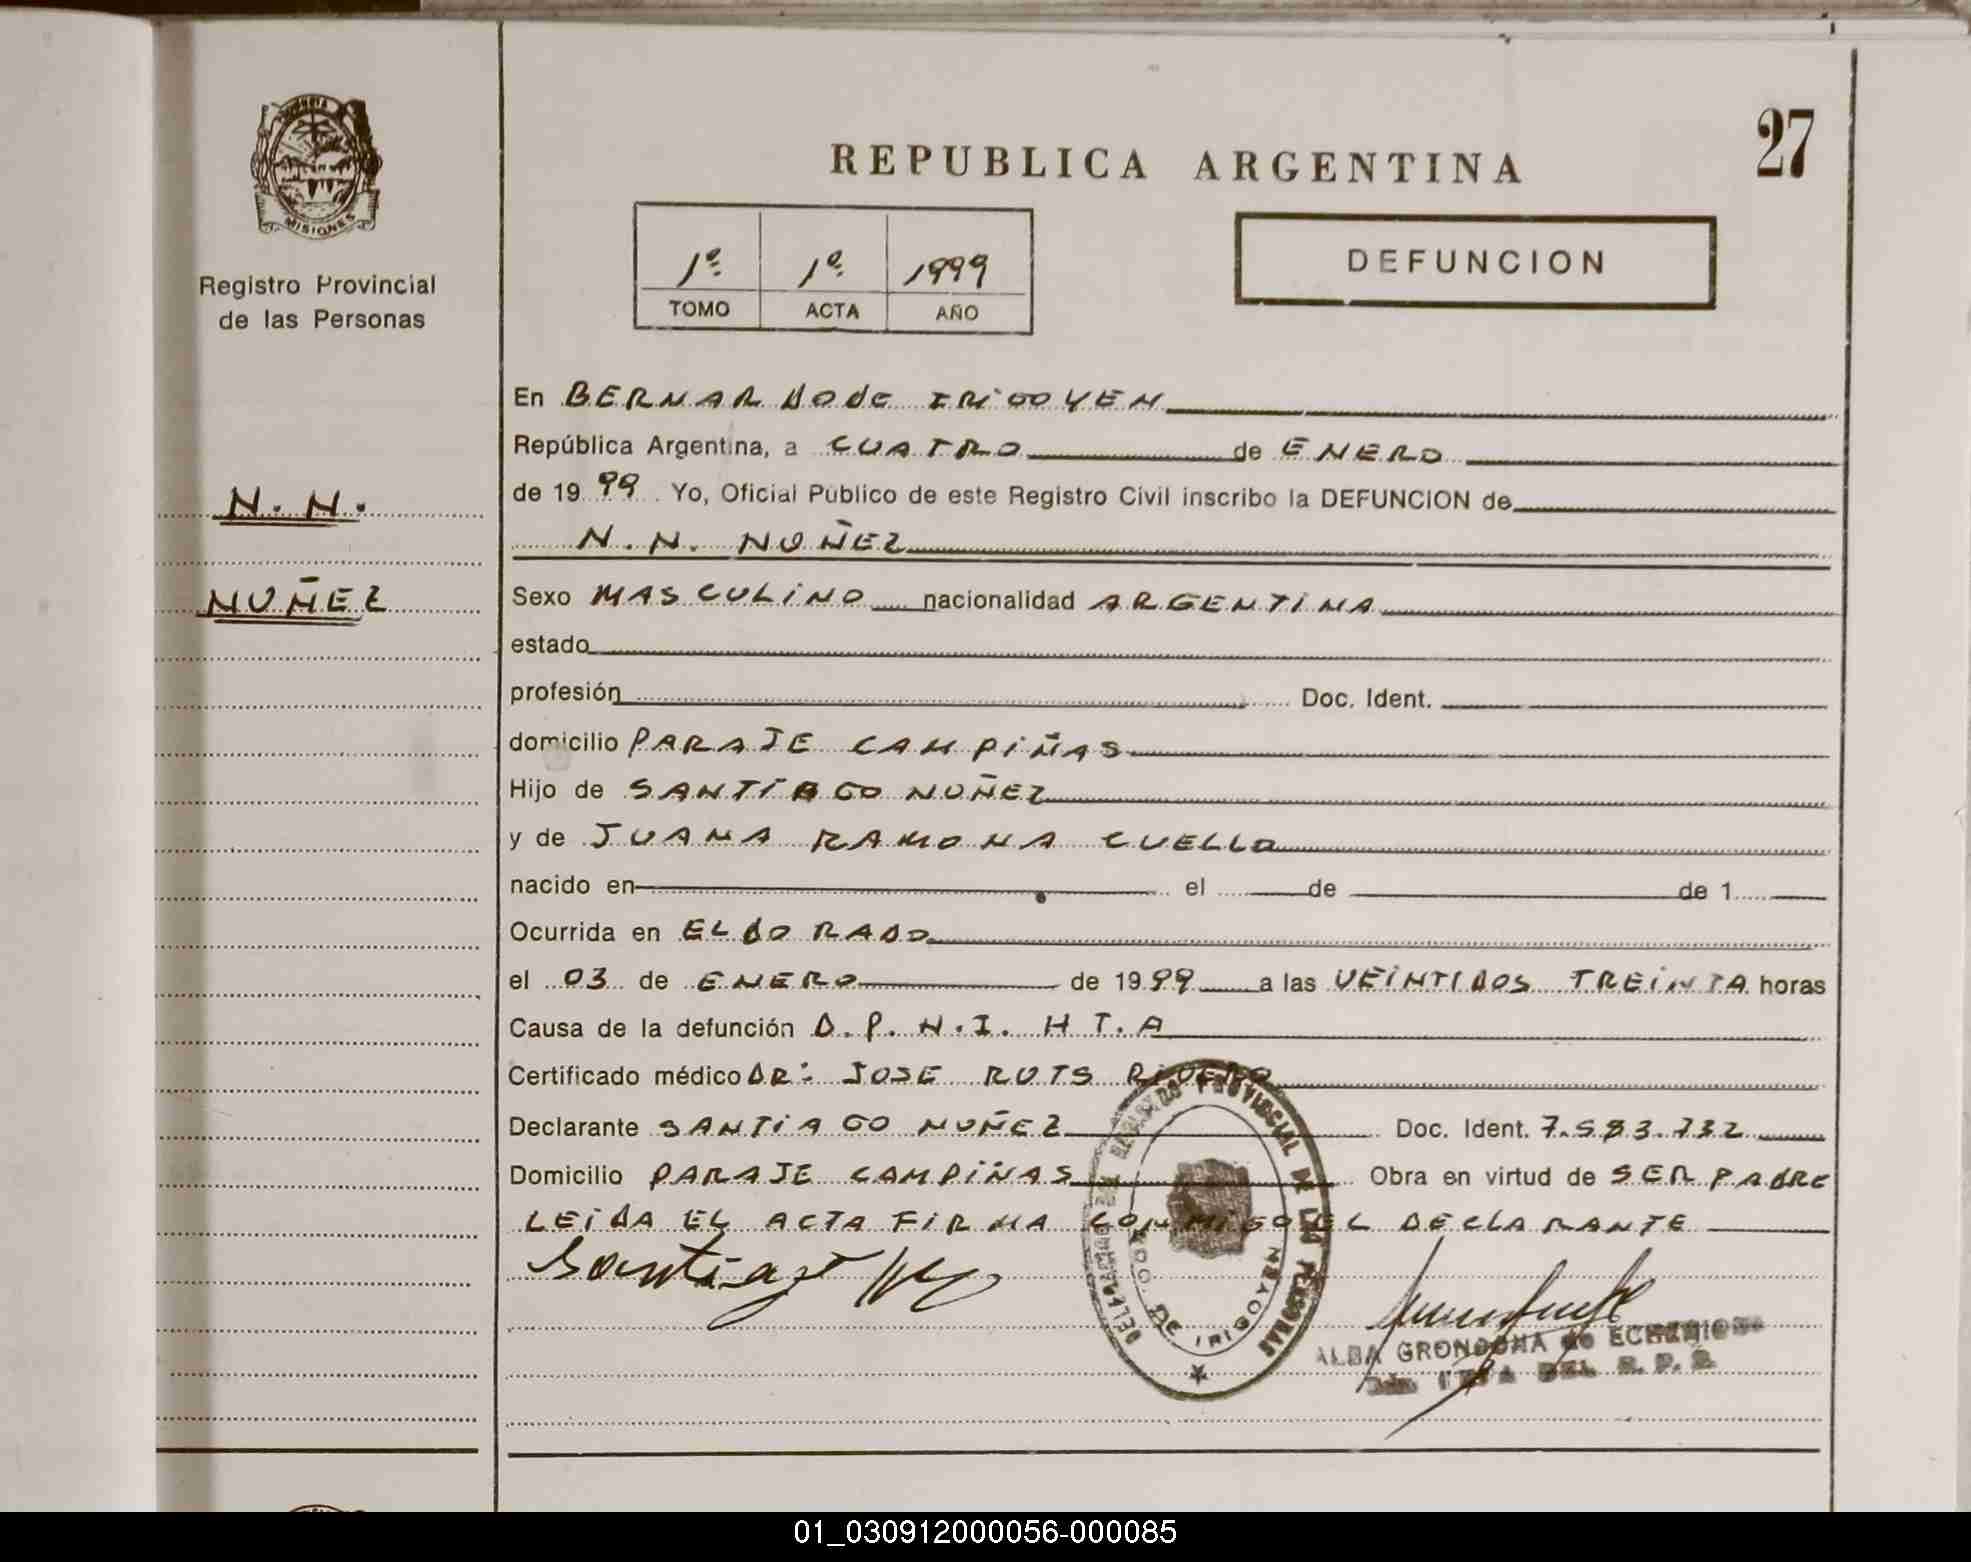 MISIONES
Registro Provincial
de las Personas
N. N.
NUÑEZ
27
REPUBLICA ARGENTINA
1º 1º 1999
TOMO ACTA AÑO
DEFUNCION
En BERNARDO DE IRIGOYEN
República Argentina, a CUATRO de ENERO
de 19 99. Yo, Oficial Público de este Registro Civil inscribo la DEFUNCION de
N. N. NUÑEZ
Sexo MASCULINO nacionalidad ARGENTINA
estado
profesión Doc. Ident.
domicilio PARAJE CAMPIÑAS
Hijo de SANTIAGO NUÑEZ
y de JUANA RAMONA CUELLO
nacido en el de de 1
Ocurrida en ELDORADO
el 03 de ENERO de 1999 a las VEINTIDOS TREINTA horas
Causa de la defunción D.P.N.I. H T.A
Certificado médico DR: JOSE RUTS RIVERO
Declarante SANTIAGO NUÑEZ Doc. Ident. 7.583.732
Domicilio PARAJE CAMPIÑAS Obra en virtud de SER PADRE
LEIDA EL ACTA FIRMA CONMIGO EL DECLARANTE
Santiago
PROVINCIAL DE LAS PERSONAS
DE IRIGOYEN
ALBA GRONDONA de
DEL R. P. P.
01_030912000056-000085